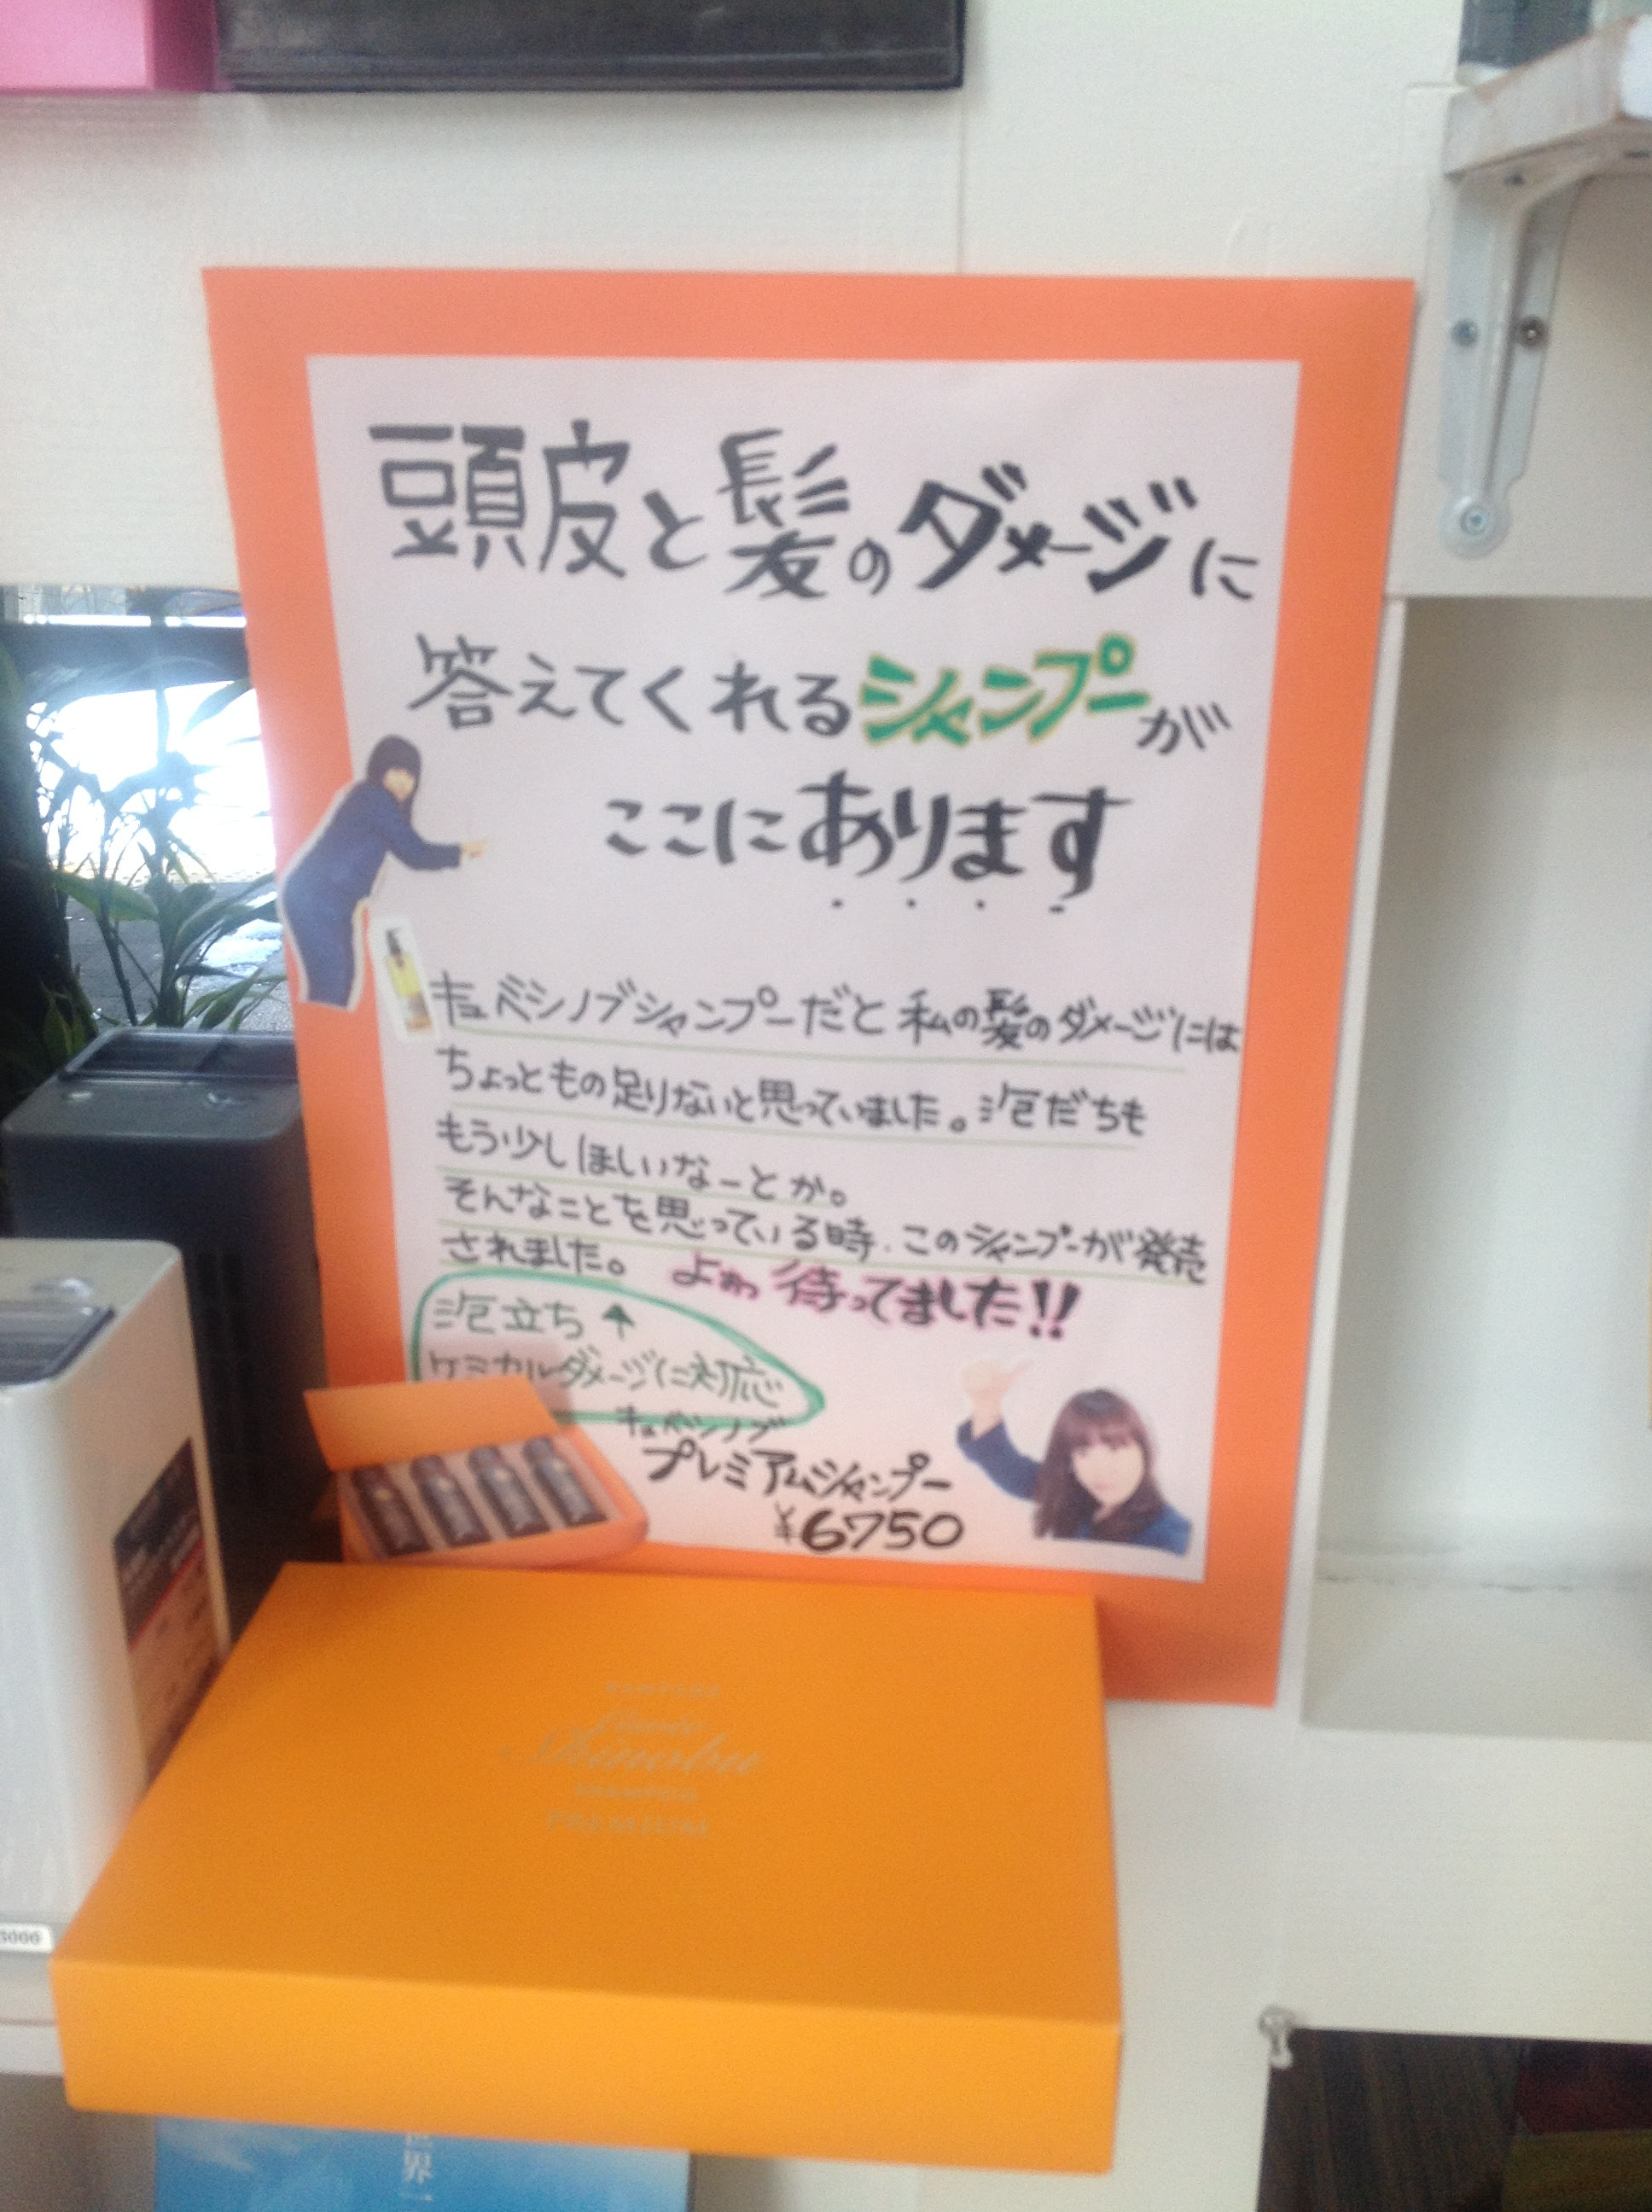 頭皮と髪のダメージに
答えてくれるシャンプーが
ここにあります
キュベシノブシャンプーだと私の髪のダメージには
ちょっともの足りないと思っていました。泡だちも
もう少しほしいなーとか。
そんなことを思っている時、このシャンプーが発売
されました。 待ってました!!
泡立ち↑
ケミカルダメージに対応
キュベシノブ
プレミアムシャンプー
¥6750
Shinobu
SHAMPOO
PREMIUM
3000
世界一